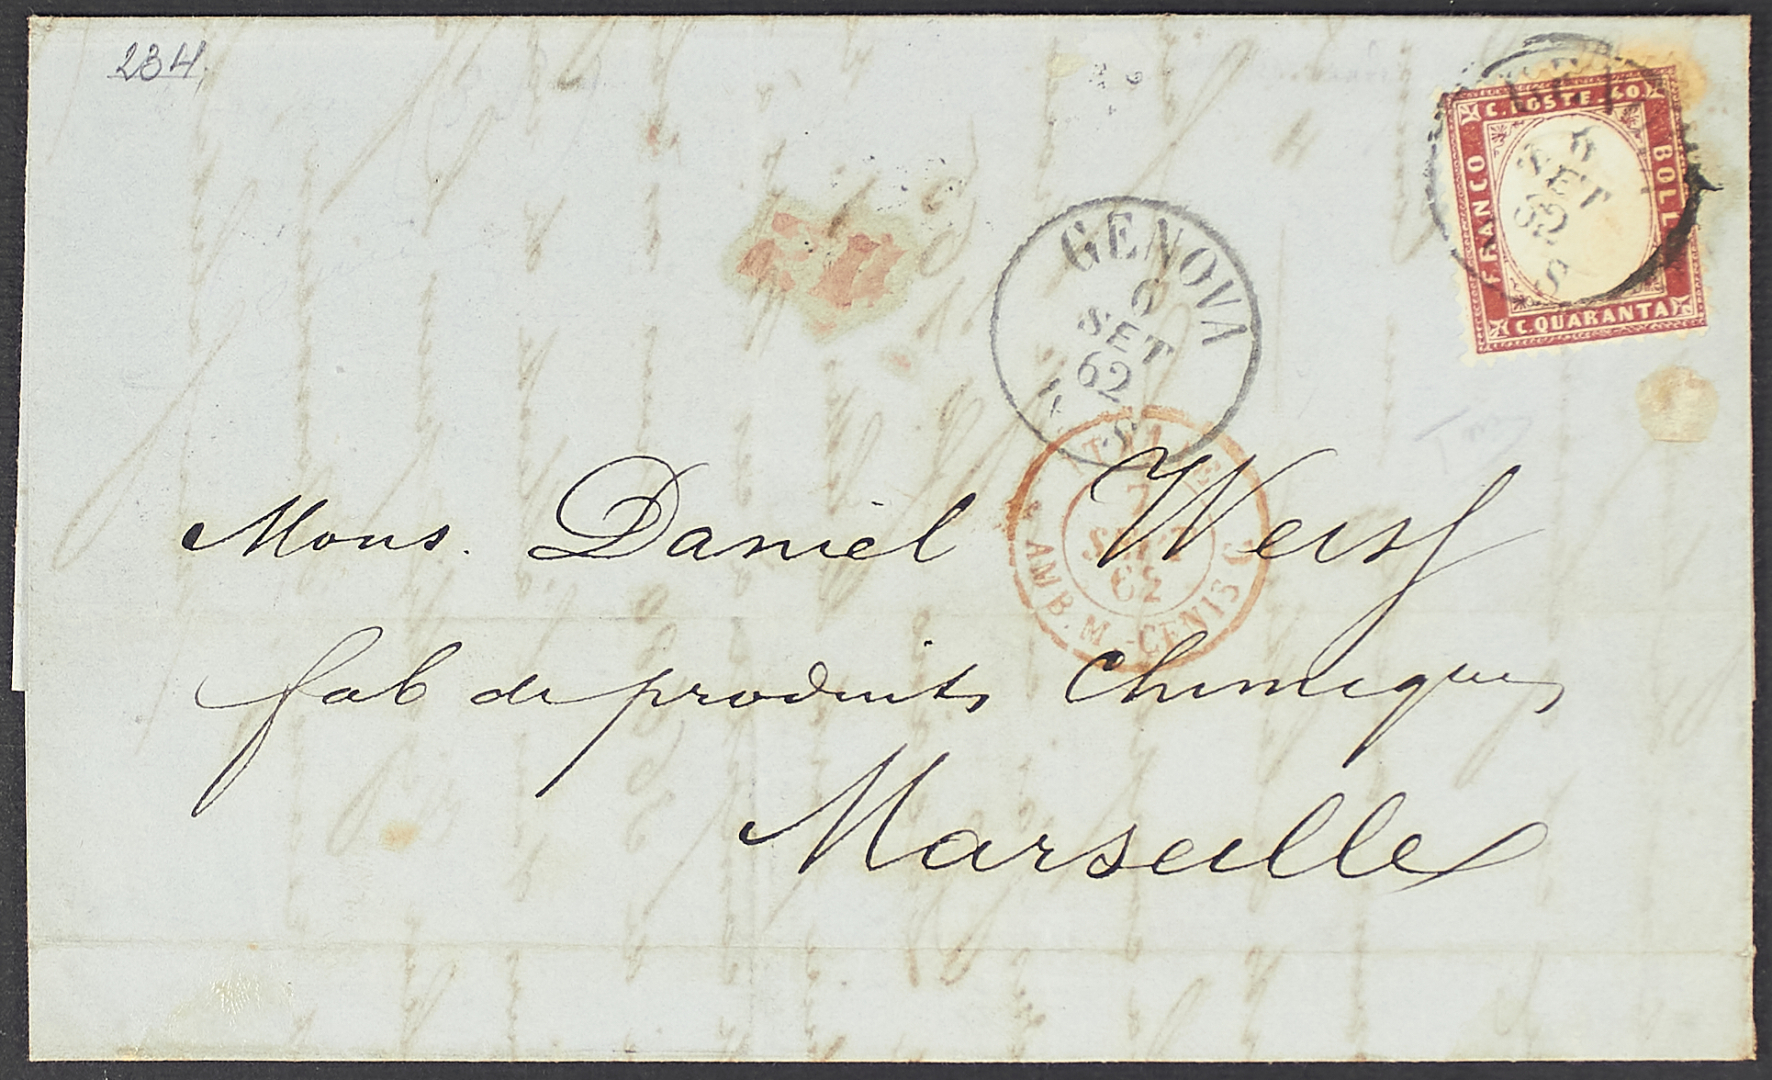 234
C. POSTE. 40.
FRANCO
BOLLO
C. QUARANTA
SET
62
GENOVA
6
SET
62
7
SEPT
62
AMB. M.-CENIS
Mons. Daniel Weiss
fab de produits Chimiques
Marseille